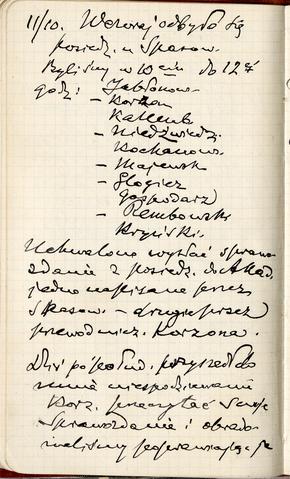 11/10. Wczoraj odbyło się
posiedz. u Sparow.
Byliśmy w 10ciu do 12¾
godz: Jabłonow.
– Korzon
Kallenb
– Niedźwiedz.
Kochanow.
– Majewsk
– Glogier
Gospodarz
– Rembowski
Kryński.
Uchwalono wysłać sprawo
zdanie z posiedz. do Akad.
jedno napisane przez
– drugie przez
przewodnicz. Korzona.
Dziś po połud. przyszedł do
mnie niespodziewanie
Korz. przeczytać swoje
Sprawozdanie i obrado
waliśmy poprawiając je